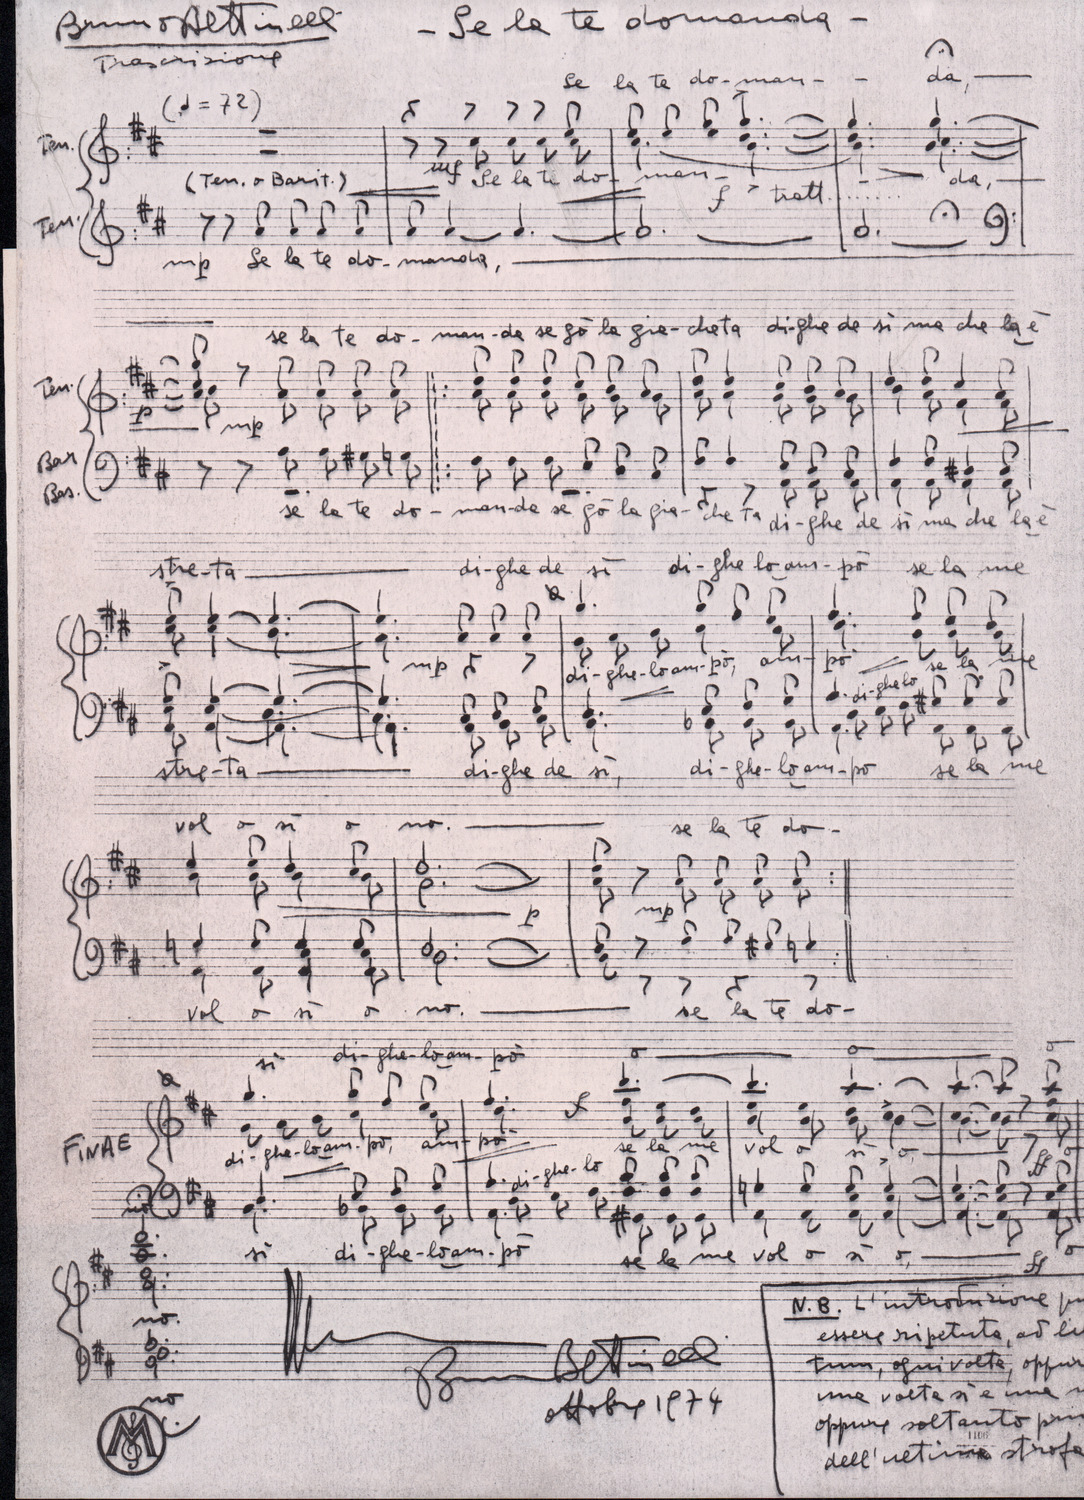 Bruno Bettinelli
- Se la te domanda -
Trascrizione
Se la te do-man- - da,
(♩ = 72)
Ten.
mf Se la te do- man- - da,
(Ten. o Barit.)
f tratt........
Ten.
mp Se la te do-manda,
se la te do- man-da se gò la gia-cheta di-ghe de sì ma che la è
Ten.
p mp
Bar
Bas.
se la te do-man-da se gò la gia-che ta di-ghe de sì ma che la è
stre-ta di-ghe de sì di-ghe lo am-pò se la me
mp di-ghe-lo am-pò, am-pò se la me
di-ghe lo
stre-ta di-ghe de sì, di-ghe-lo am-pò se la me
vol o sì o no. se la te do-
mp p
vol o sì o no. se la te do-
sì di-ghe-lo am-pò o o o
f
FINAE
di-ghe-lo am-pò, am-pò- se la me vol o sì o,
di-ghe-lo
ff o
no
sì di-ghe-lo am-pò se la me vol o sì o, ff o
no.
no
Bruno Bettinelli
ottobre 1974
N.B. L'introduzione pu
essere ripetuta, ad li
tum, ogni volta, oppur
una volta sì e una n
oppure soltanto pri
1106
dell'ultima strofa
M